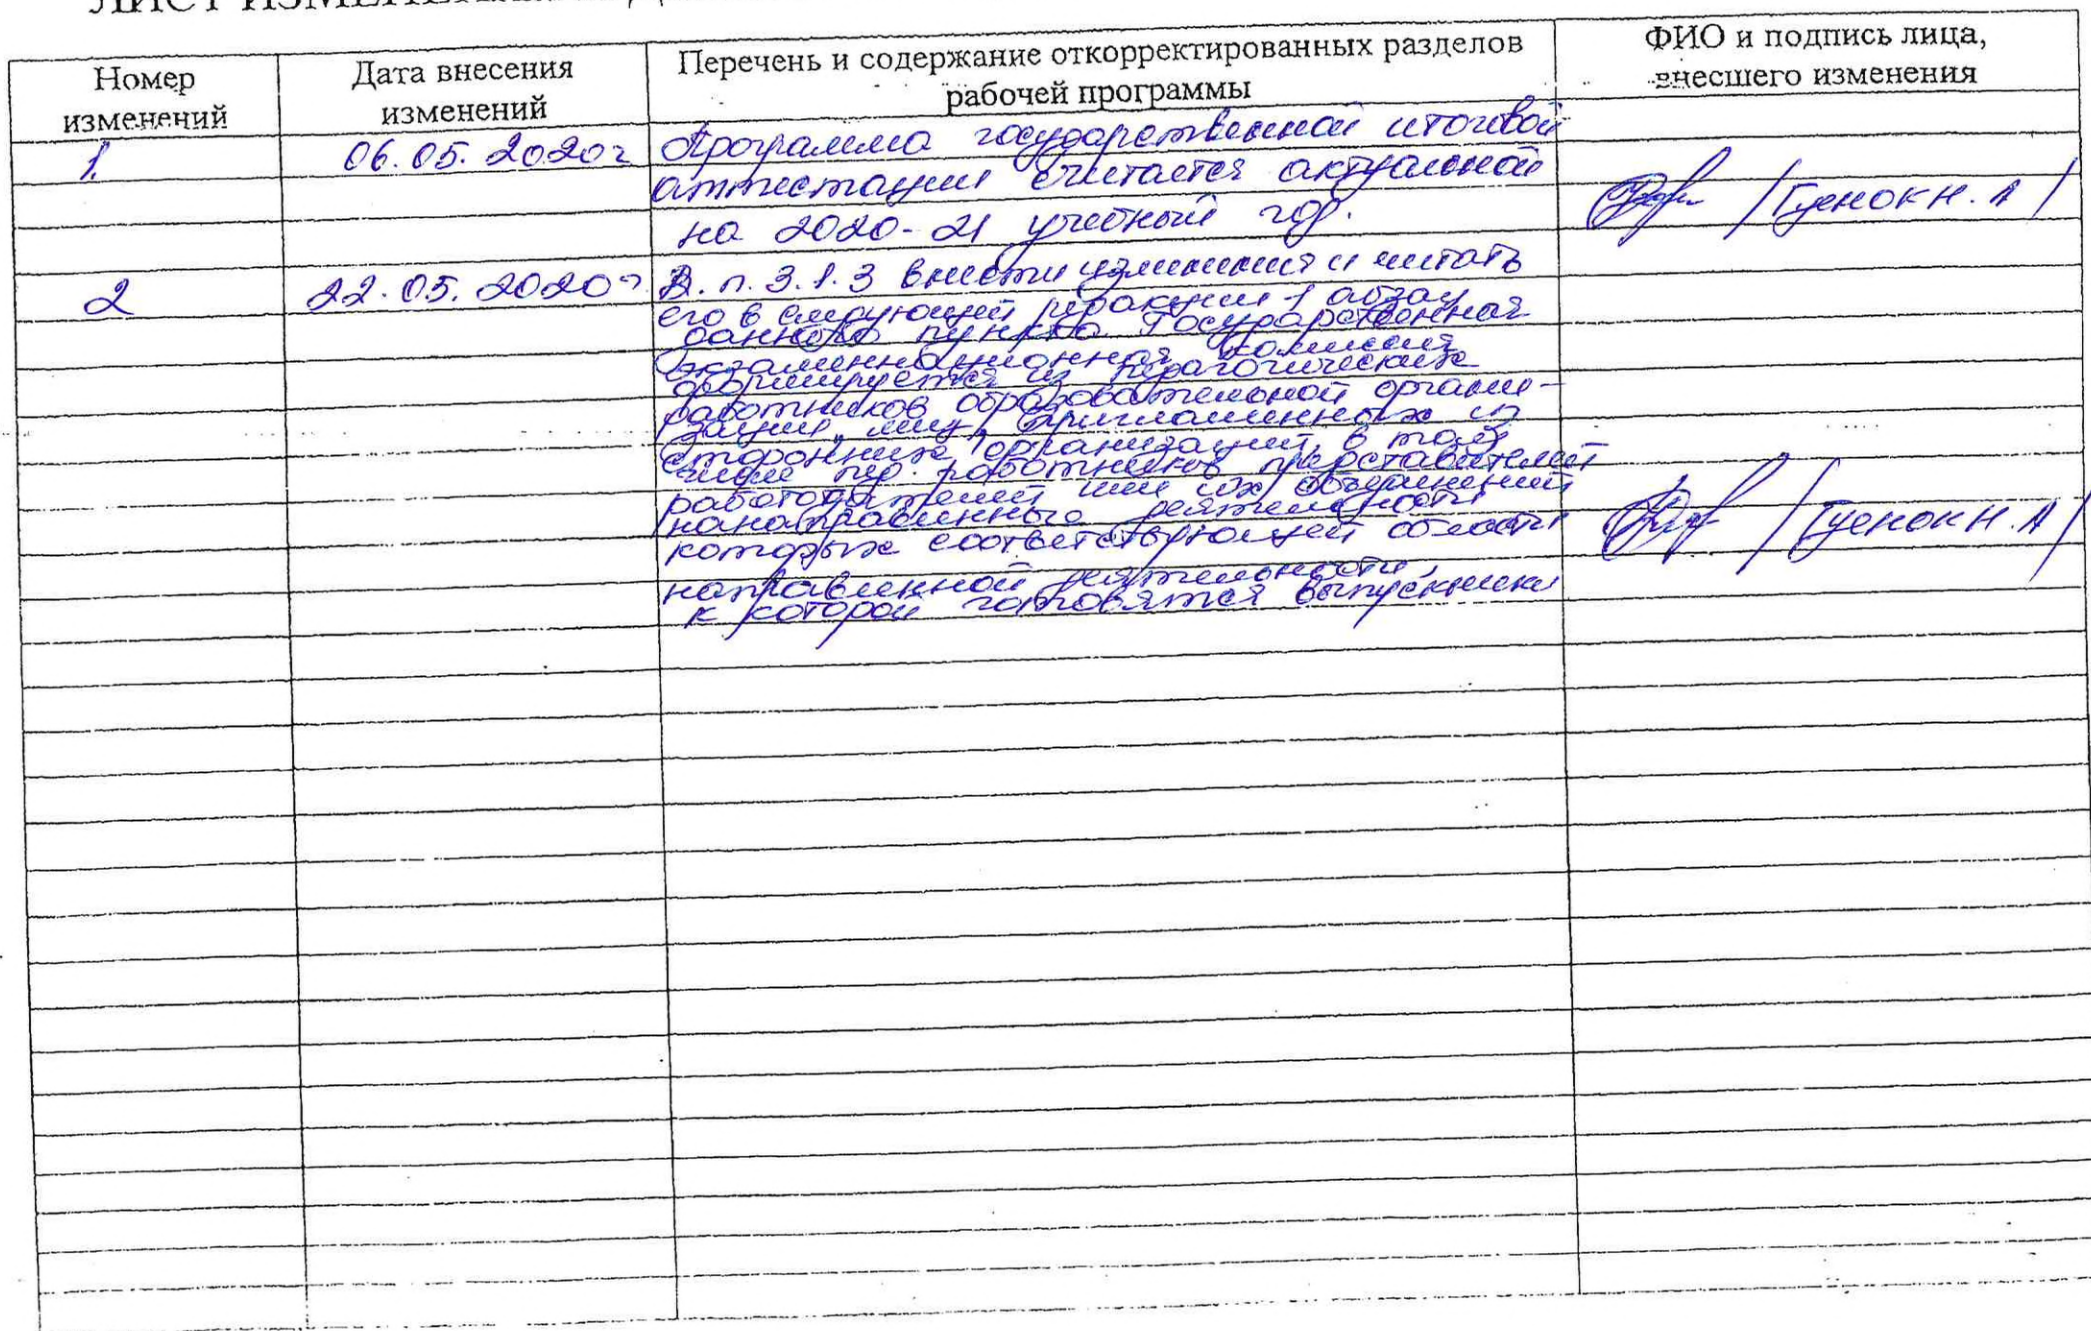 ЛИСТ ИЗМЕНЕНИЙ
Номер изменений
Дата внесения изменений
Перечень и содержание откорректированных разделов рабочей программы
ФИО и подпись лица, внесшего изменения
1.
06.05.2020г
Программа государственной итоговой
аттестации считается актуальной
на 2020-21 учебный год.
/ Гуенок Н. А /
2
22.05.2020г
В. п. 3.1.3 внести изменения и читать
его в следующей редакции 1 абзац
данного пункта Государственная
Экзаменационная комиссия
формируется из педагогических
работников образовательной органи-
зации, лиц, приглашенных из
сторонних организаций, в том
числе пед. работников, представителей
работодателей или их объединений
направленные деятельности
которых соответствующей области
направленной деятельности,
к которой готовятся выпускники
/ Гуенок Н. А /